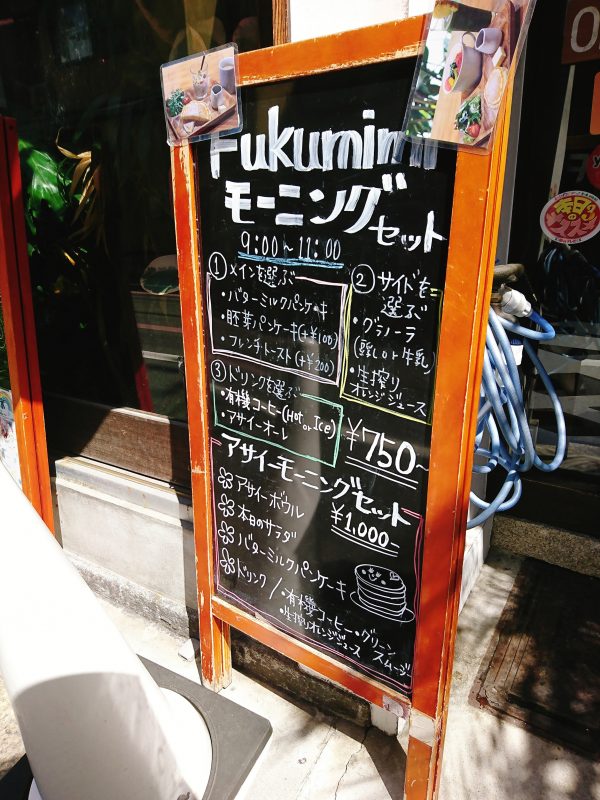 Fukumimi
モーニング
セット
9:00～11:00
① メインを選ぶ
・バターミルクパンケーキ
・胚芽パンケーキ(+¥100)
・フレンチトースト(+¥200)
② サイドを
選ぶ
・グラノーラ
(豆乳 or 牛乳)
・生搾り
オレンジジュース
③ ドリンクを選ぶ
・有機コーヒー(Hot or Ice)
・アサイーオーレ
¥750～
アサイーモーニングセット
¥1,000
アサイーボウル
本日のサラダ
バターミルクパンケーキ
ドリンク/・有機コーヒー・グリーン
スムージー
・生搾りオレンジジュース
本日の